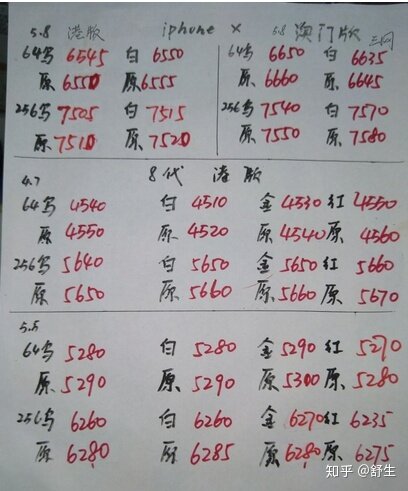 5.8 港版 iphone X 5.8 澳门版 三网
64乌 6545 白 6550 64乌 6650 白 6635
原 6550 原 6555 原 6660 原 6645
256乌 7505 白 7515 256乌 7540 白 7570
原 7510 原 7520 原 7550 原 7580
4.7 8代 港版
64乌 4540 白 4510 金 4530 红 4550
原 4550 原 4520 原 4540 原 4560
256乌 5640 白 5650 金 5650 红 5660
原 5650 原 5660 原 5660 原 5670
5.5
64乌 5280 白 5280 金 5290 红 5270
原 5290 原 5290 原 5300 原 5280
256乌 6260 白 6260 金 6270 红 6235
原 6280 原 6285 原 6280 原 6275
知乎 @舒生